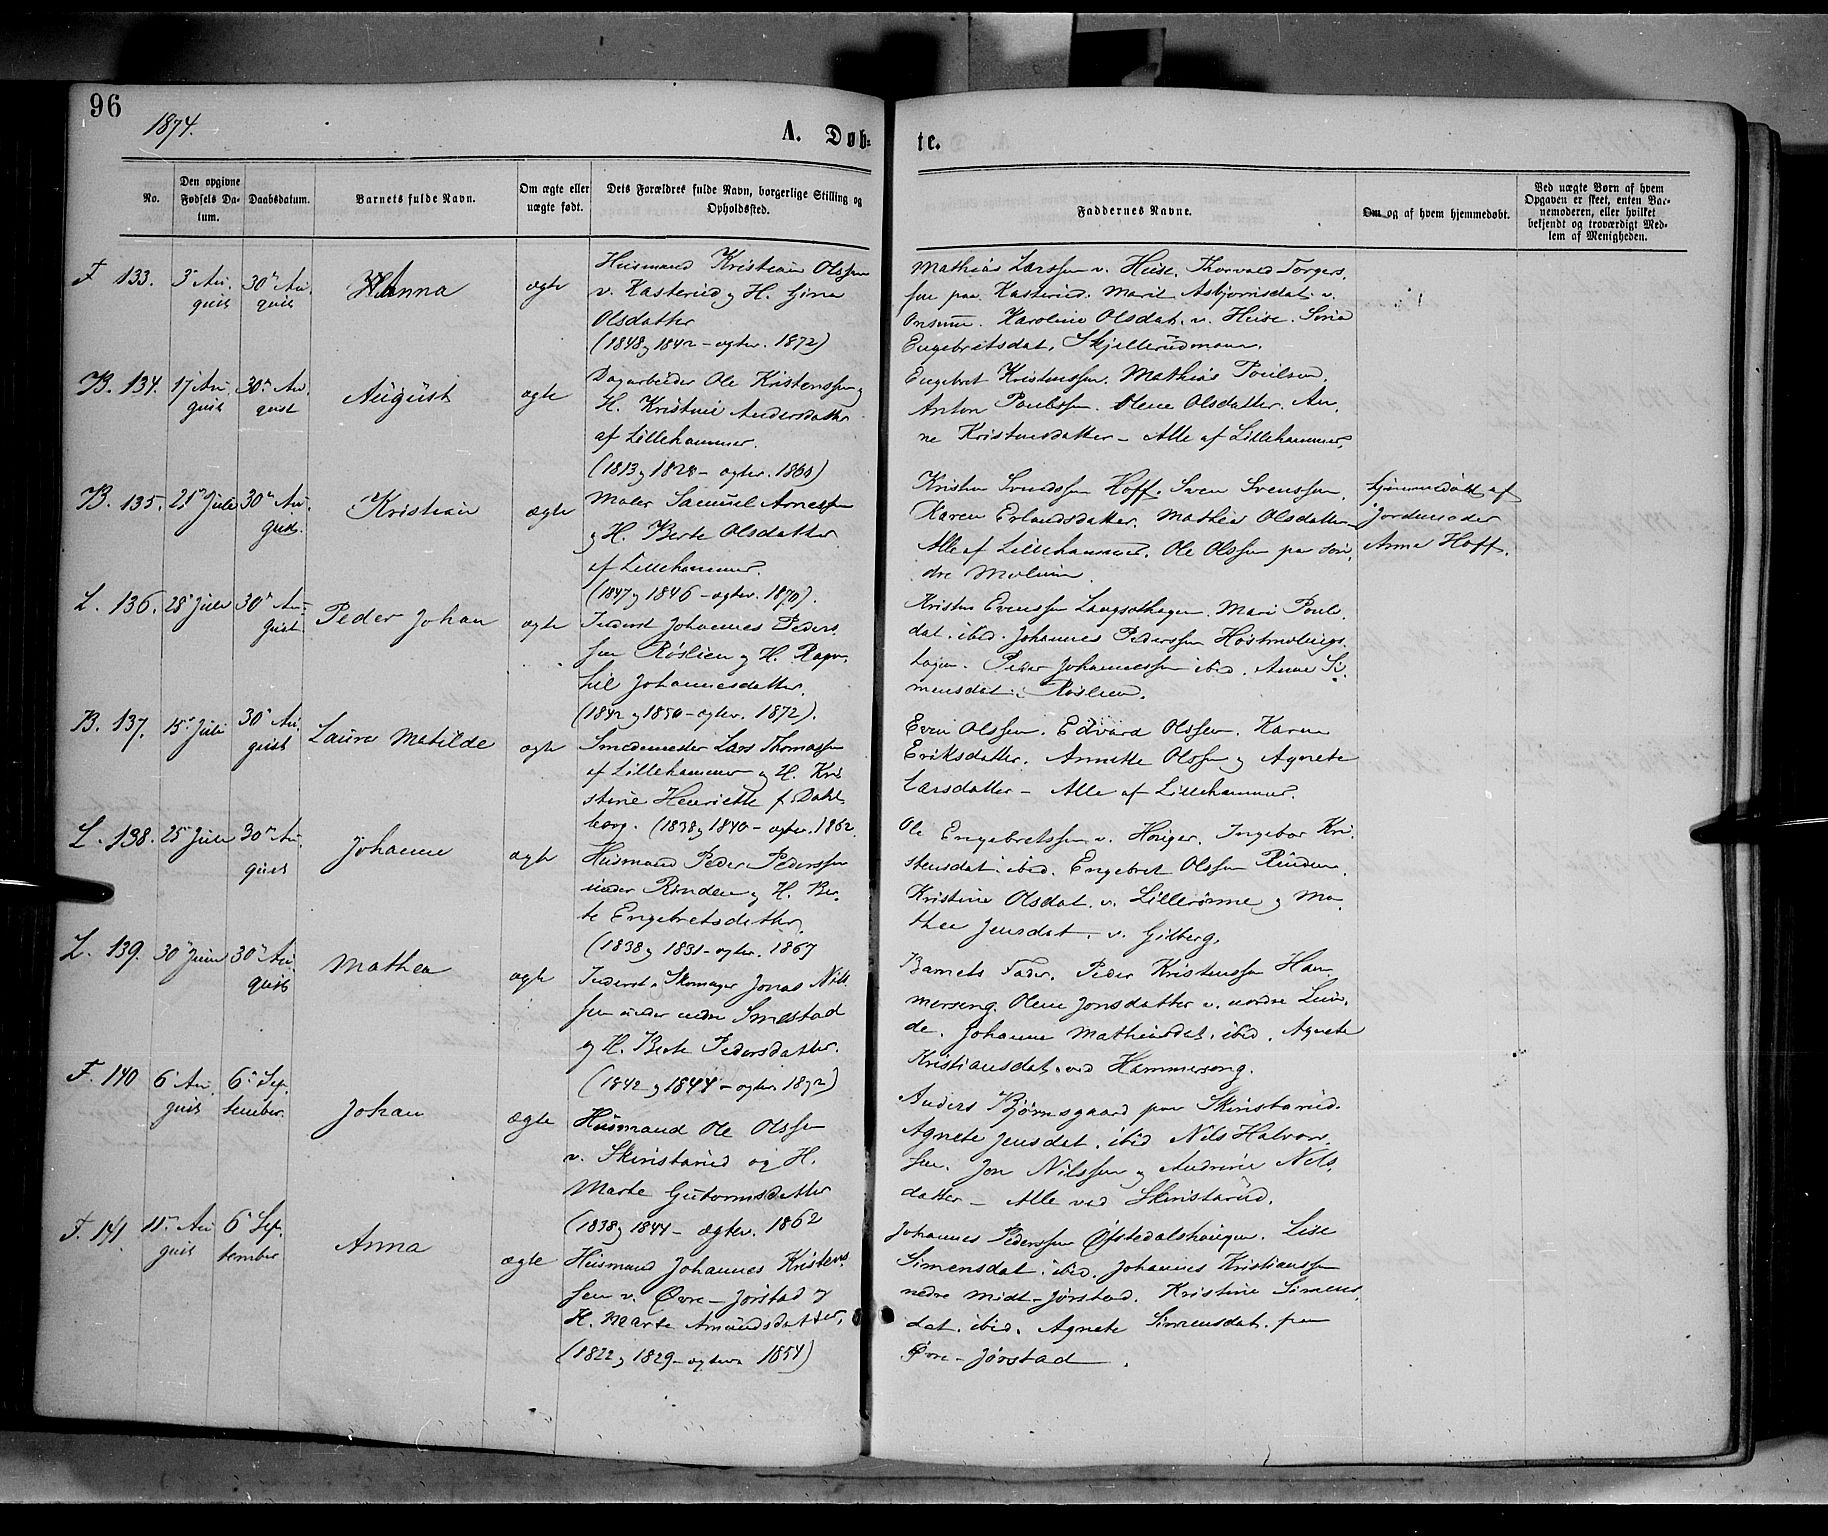 96
1874.
A. Døb-
te.
No.
Den opgivne
Fødsels Da-
tum.
Daabsdatum.
Barnets fulde Navn.
Om ægte eller
uægte født.
Dets Forældres fulde Navn, borgerlige Stilling og
Opholdssted.
Faddernes Navne.
Om og af hvem hjemmedøbt.
Ved uægte Børn af hvem
Opgaven er skeet, enten Bar-
nemoderen, eller hvilket
bekjendt og troværdigt Med-
lem af Menigheden.
F. 133.
3 Au-
gust
30 Au-
gust
Hanna
ægte
Husmand Kristian Olssen
v. Kasterud og H. Gina
Olsdatter
(1848 og 1842 – ægtev. 1872)
Mathias Larssen v. Huse. Thorvald Torgers-
sen paa Kasterud. Marit Asbjørnsdat. v.
Onsum. Karoline Olsdat. v. Huse.
Engebretsdat.
B. 134.
17 Au-
gust
30 Au-
gust
August
ægte
Dagarbeider Ole Kristenssen og
H. Kristine Andersdatter
af Lillehammer.
(1813 og 1828 – ægtev. 1860)
Engebret Kristenssen. Mathias Poulsen.
Anton Poulssen. Olene Olsdatter. An-
ne Kristensdatter – Alle af Lillehammer.
B. 135.
21 Juli
30 Au-
gust.
Kristian
ægte
Maler Samuel Arnesen
og H. Berte Olsdatter
af Lillehammer.
(1847 og 1846 – ægtev. 1870).
Kristen Svendssen Hoff. Sven Svenssen.
Karen Erlandsdatter. Mathea Olsdatter –
Alle af Lillehammer. Ole Olssen paa søn-
dre
Hjemmedøbt af
Jordemoder
Anna Hoff.
L. 136.
28 Juli
30 Au-
gust.
Peder Johan
ægte
Inderst Johannes Peders-
sen Røslien og H. Ragn-
hil Johannesdatter.
(1842 og 1850 – ægtev. 1872).
Kristen Evenssen Mari Pouls-
dat. ibid. Johannes Pederssen
hagen. Peder Johannessen ibid. Anne Si-
mensdat. Røslien.
B. 137.
15 Juli
30 Au-
gust
Laura Matilde
ægte
Smedemester Lars Thomassen
af Lillehammer og H. Kri-
stine Henriette f. Dahl-
borg. (1838 og 1840 – ægtev. 1862.
Even Olssen. Edvard Olssen. Karen
Eriksdatter. Annette Olssen og Agnete
Larsdatter – Alle af Lillehammer.
L. 138.
25 Juli
30 Au-
gust
Johanne
ægte
Husmand Peder Pederssen
under Rinden og H. Ber-
te Engebretsdatter.
(1838 og 1831 – ægtev. 1867
Ole Engebretssen v. Ingebor Kri-
stensdat. ibid. Engebret Olssen Rinden.
Kristine Olsdat. v. Lillerønne og Ma-
thea Jensdat. v. Gilberg.
L. 139.
30 Juni
30 Au-
gust
Mathea
ægte
Inderst, Skomager Jonas Nils-
sen under nedre Smestad
og H. Berte Pedersdatter.
(1842 og 1844 – ægtev. 1872)
Barnets Fader. Peder Kristenssen Ham-
merseng. Olene Jonsdatter v. nordre Lun-
de. Johanne Mathiasdat. ibid. Agnete
Kristiansdat. ved Hammerseng.
F. 140
6 Au-
gust
6 Sep-
tember.
Johan
ægte
Husmand Ole Olssen
v. Skinstarud og H.
Marte Gutormsdatter
(1838 og 1844 – ægtev. 1862
Anders Bjørnsgaard paa Skinstarud.
Agnete Jensdat. ibid Nils Halvors-
sen. Jon Nilssen og Andrine Nels-
datter – Alle ved Skinstarud.
F. 141.
11 Au-
gust
6 Sep-
tember
Anna
ægte
Husmand Johannes Kristens-
sen v. Øvre-Jørstad og
H. Marte Amundsdatter,
(1822 og 1829 – ægtev. 1854)
Johannes Pederssen Øfstedalshaugen. Lise
Simensdat. ibid. Johannes Kristianssen
nedre Midt-Jørstad. Kristine Simens-
dat. ibid. Agnete Simensdat. paa
Øvre-Jørstad.